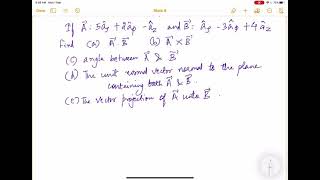 If A⃗: 5âρ + 2âφ - âz and B⃗: âρ - 3âφ + 4âz
Find (a) A⃗·B⃗ (b) A⃗×B⃗
(c) angle between A⃗ & B⃗
(d) The unit normal vector normal to the plane
containing both A⃗ & B⃗.
(e) The vector projection of A⃗ unto B⃗.